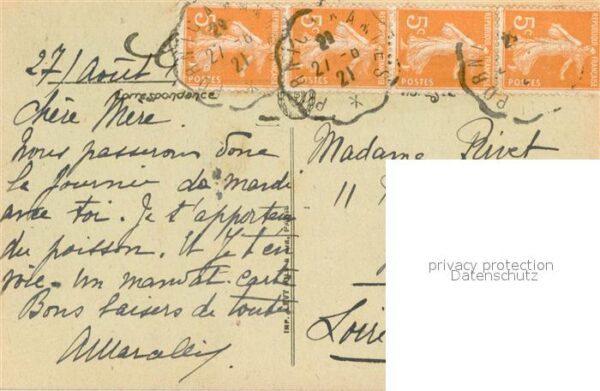 5c 5c 5c 5c
POSTES POSTES POSTES POSTES
27-8
21
27-8
21
27/Août
Correspondance
Chère Mère.
Nous passerons donc
la journée de mardi
avec toi. Je t'apporterai
du poisson. Et Je t'en
voie un mandat-carte
Bons baisers de toutes
Madame Rivet
11
Loire
privacy protection
Datenschutz